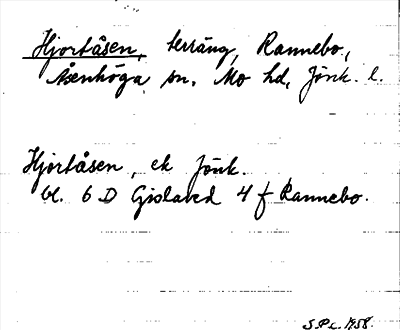 Hjortåsen, terräng, Rannebo,
Åsenhöga sn. Mo hd, Jönk. l.
Hjortåsen, ek Jönk.
bl. 6 D Gislaved 4 f Rannebo.
S.P.L. 1958.